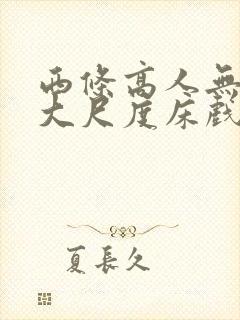 西條高人無
大尺度床戲
夏長久